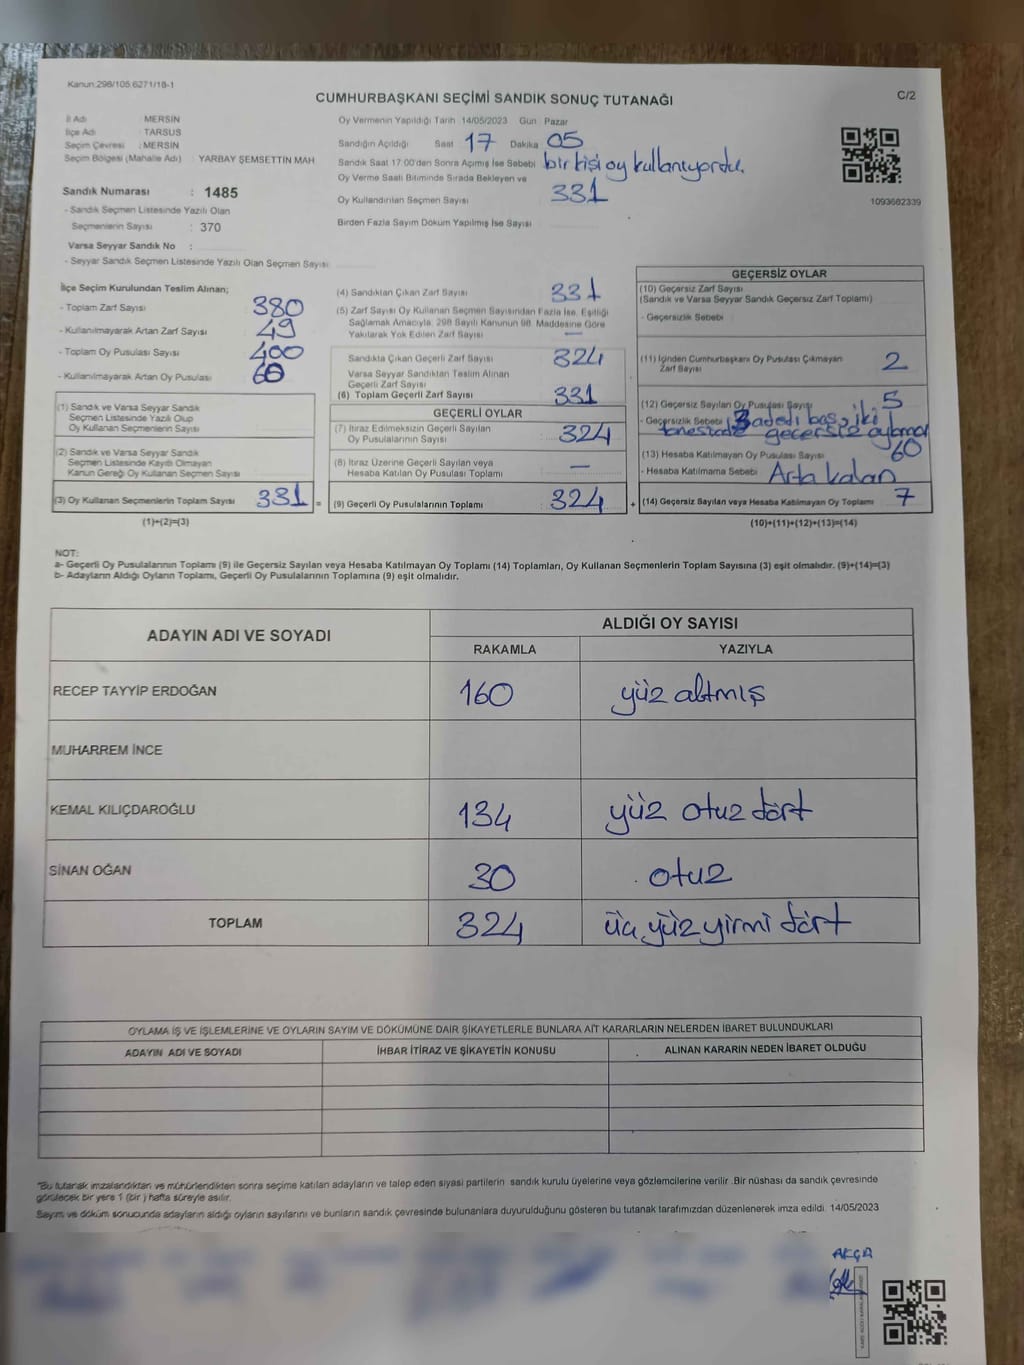 Kanun:298/105.6271/18-1
CUMHURBAŞKANI SEÇİMİ SANDIK SONUÇ TUTANAĞI
C/2
İl Adı MERSİN
İlçe Adı TARSUS
Seçim Çevresi : MERSİN
Seçim Bölgesi (Mahalle Adı) YARBAY ŞEMSETTİN MAH
Sandık Numarası : 1485
- Sandık Seçmen Listesinde Yazılı Olan
Seçmenlerin Sayısı : 370
Varsa Seyyar Sandık No :
- Seyyar Sandık Seçmen Listesinde Yazılı Olan Seçmen Sayısı
Oy Vermenin Yapıldığı Tarih 14/05/2023 Gün Pazar
Sandığın Açıldığı Saat 17 Dakika 05
Sandık Saat 17:00'den Sonra Açılmış İse Sebebi bir kişi oy kullanıyordu.
Oy Verme Saati Bitiminde Sırada Bekleyen ve
Oy Kullandırılan Seçmen Sayısı 331
Birden Fazla Sayım Döküm Yapılmış İse Sayısı
1093682339
İlçe Seçim Kurulundan Teslim Alınan;
- Toplam Zarf Sayısı 380
- Kullanılmayarak Artan Zarf Sayısı 49
- Toplam Oy Pusulası Sayısı 400
- Kullanılmayarak Artan Oy Pusulası 60
(1) Sandık ve Varsa Seyyar Sandık
Seçmen Listesinde Yazılı Olup
Oy Kullanan Seçmenlerin Sayısı
(2) Sandık ve Varsa Seyyar Sandık
Seçmen Listesinde Kayıtlı Olmayan
Kanun Gereği Oy Kullanan Seçmen Sayısı
(3) Oy Kullanan Seçmenlerin Toplam Sayısı 331 =
(1)+(2)=(3)
(4) Sandıktan Çıkan Zarf Sayısı 331
(5) Zarf Sayısı Oy Kullanan Seçmen Sayısından Fazla İse, Eşitliği
Sağlamak Amacıyla; 298 Sayılı Kanunun 98. Maddesine Göre
Yakılarak Yok Edilen Zarf Sayısı —
Sandıkta Çıkan Geçerli Zarf Sayısı 324
Varsa Seyyar Sandıktan Teslim Alınan
Geçerli Zarf Sayısı
(6) Toplam Geçerli Zarf Sayısı 331
GEÇERLİ OYLAR
(7) İtiraz Edilmeksizin Geçerli Sayılan
Oy Pusulalarının Sayısı 324
(8) İtiraz Üzerine Geçerli Sayılan veya
Hesaba Katılan Oy Pusulası Toplamı —
(9) Geçerli Oy Pusulalarının Toplamı 324 +
GEÇERSİZ OYLAR
(10) Geçersiz Zarf Sayısı
(Sandık ve Varsa Seyyar Sandık Geçersiz Zarf Toplamı)
- Geçersizlik Sebebi
(11) İçinden Cumhurbaşkanı Oy Pusulası Çıkmayan
Zarf Sayısı 2
(12) Geçersiz Sayılan Oy Pusulası Sayısı 5
- Geçersizlik Sebebi 3 adedi boş, iki
tanesi de geçersiz oylama
(13) Hesaba Katılmayan Oy Pusulası Sayısı 60
- Hesaba Katılmama Sebebi Arta kalan
(14) Geçersiz Sayılan veya Hesaba Katılmayan Oy Toplamı 7
(10)+(11)+(12)+(13)=(14)
NOT:
a- Geçerli Oy Pusulalarının Toplamı (9) ile Geçersiz Sayılan veya Hesaba Katılmayan Oy Toplamı (14) Toplamları, Oy Kullanan Seçmenlerin Toplam Sayısına (3) eşit olmalıdır. (9)+(14)=(3)
b- Adayların Aldığı Oyların Toplamı, Geçerli Oy Pusulalarının Toplamına (9) eşit olmalıdır.
ADAYIN ADI VE SOYADI ALDIĞI OY SAYISI
RAKAMLA YAZIYLA
RECEP TAYYİP ERDOĞAN 160 yüz altmış
MUHARREM İNCE
KEMAL KILIÇDAROĞLU 134 yüz otuz dört
SİNAN OĞAN 30 otuz
TOPLAM 324 üç yüz yirmi dört
OYLAMA İŞ VE İŞLEMLERİNE VE OYLARIN SAYIM VE DÖKÜMÜNE DAİR ŞİKAYETLERLE BUNLARA AİT KARARLARIN NELERDEN İBARET BULUNDUKLARI
ADAYIN ADI VE SOYADI İHBAR İTİRAZ VE ŞİKAYETİN KONUSU ALINAN KARARIN NEDEN İBARET OLDUĞU
"Bu tutanak imzalandıktan ve mühürlendikten sonra seçime katılan adayların ve talep eden siyasi partilerin sandık kurulu üyelerine veya gözlemcilerine verilir .Bir nüshası da sandık çevresinde
görülecek bir yere 1 (bir ) hafta süreyle asılır.
Sayım ve döküm sonucunda adayların aldığı oyların sayılarını ve bunların sandık çevresinde bulunanlara duyurulduğunu gösteren bu tutanak tarafımızdan düzenlenerek imza edildi. 14/05/2023
AKÇA